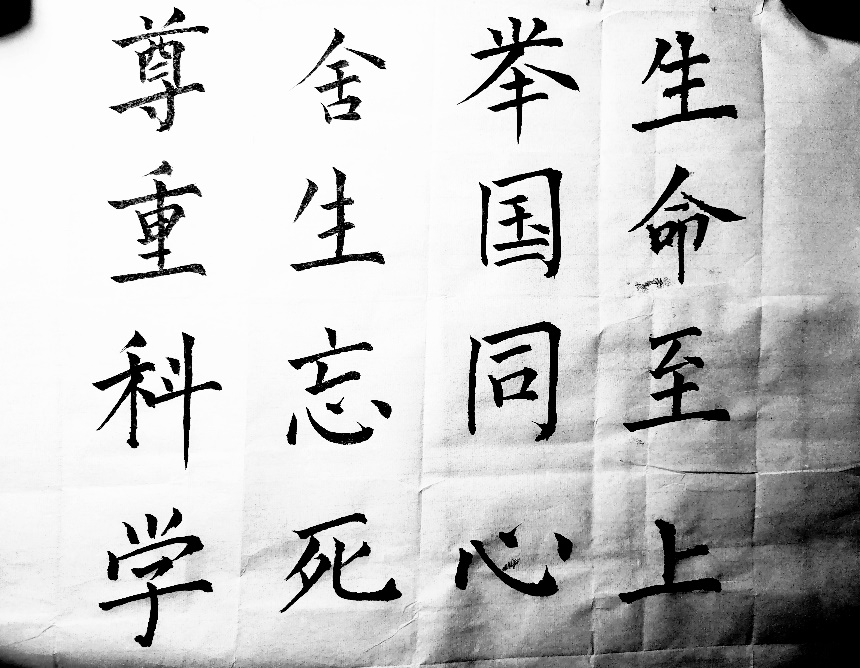 生命至上
举国同心
舍生忘死
尊重科学